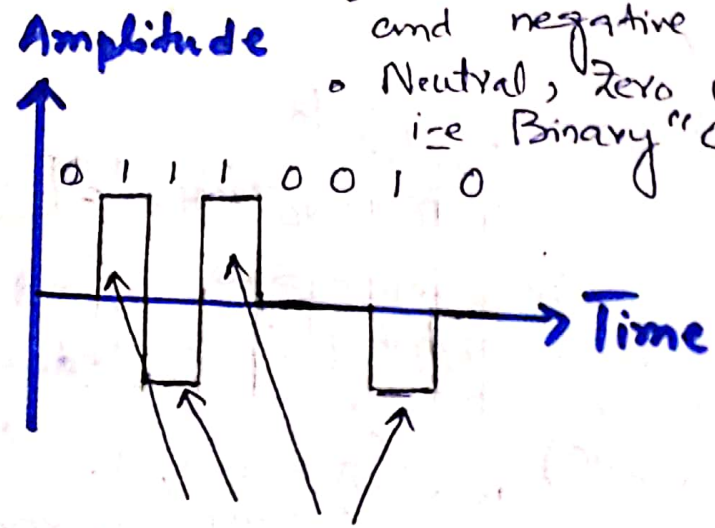 Amplitude
and negative
• Neutral, Zero
i-e Binary "
0 1 1 1 0 0 1 0
Time